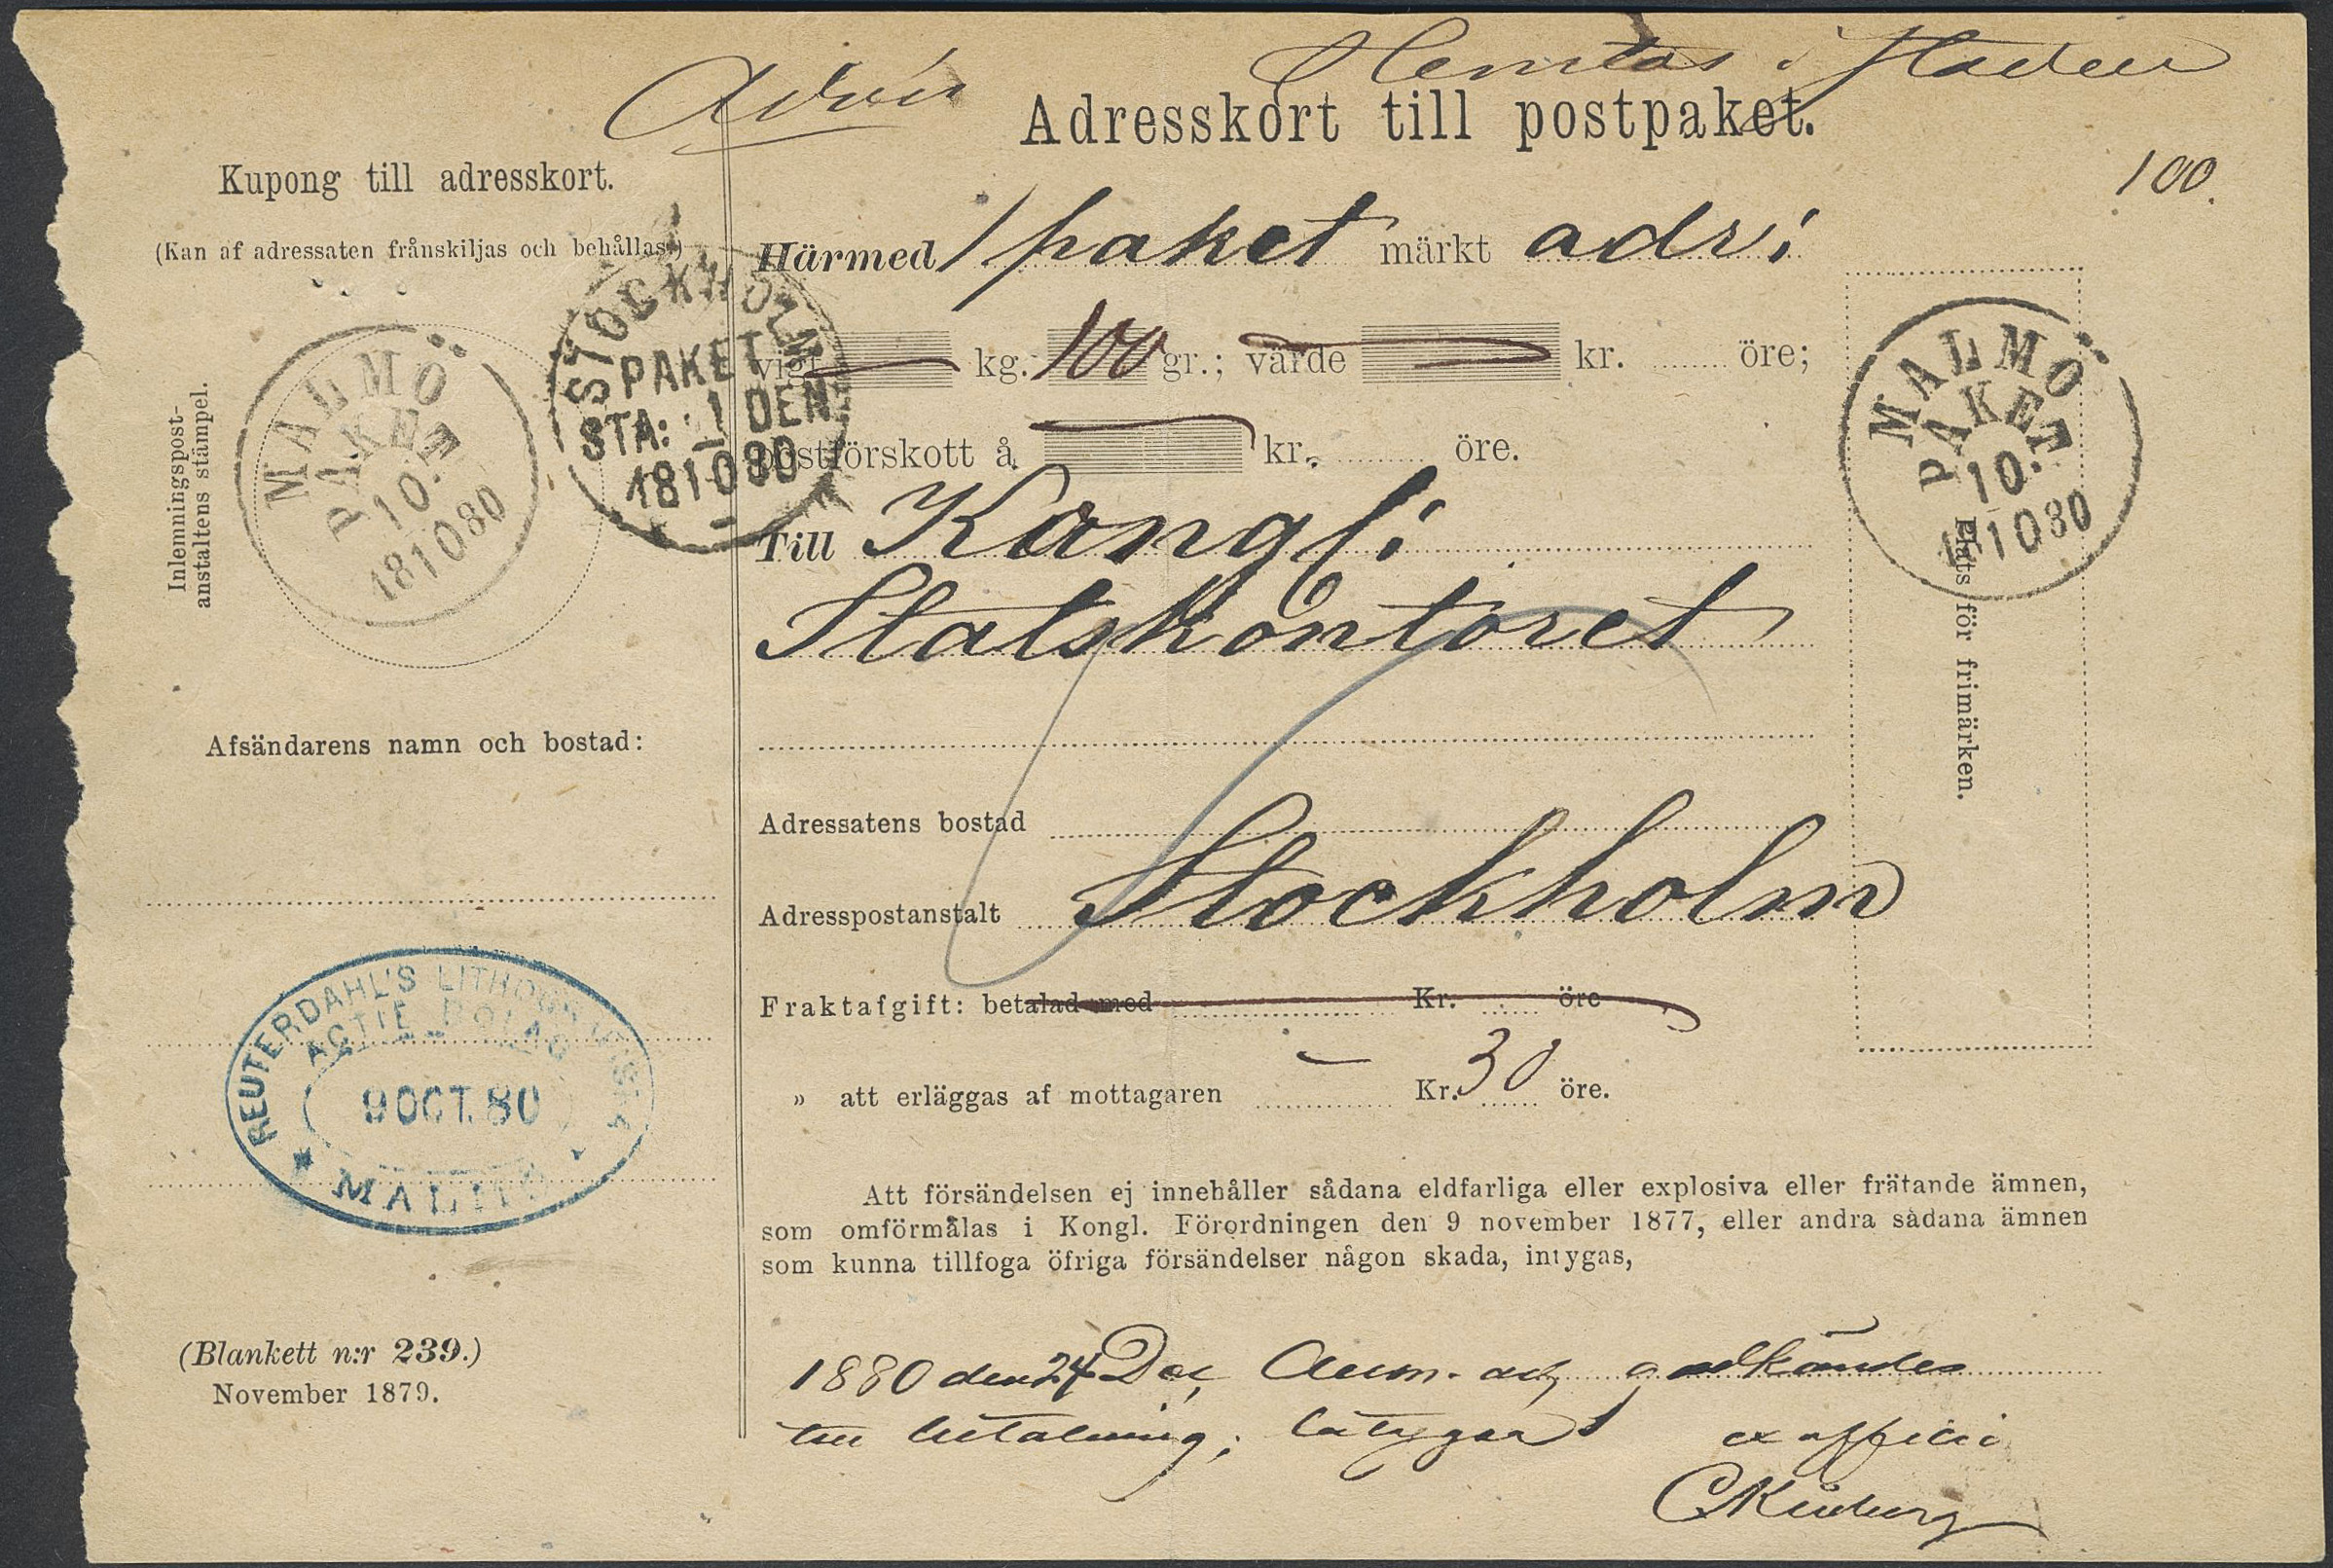 Hemtas i Staden
Adresskort till postpaket.
100.
Kupong till adresskort.
(Kan af adressaten frånskiljas och behållas.)
Härmed 1 paket märkt adr:
vigt kg. 100 gr.; värde kr. öre;
postförskott å kr. öre.
Till Kongl:
Statskontoret
Adressatens bostad
Adresspostanstalt Stockholm
Fraktafgift: betalad med Kr. öre
» att erläggas af mottagaren — Kr. 30 öre.
Att försändelsen ej innehåller sådana eldfarliga eller explosiva eller frätande ämnen,
som omförmålas i Kongl. Förordningen den 9 november 1877, eller andra sådana ämnen
som kunna tillfoga öfriga försändelser någon skada, intygas,
1880 den 24 Dec, godkändes
till betalning; intygar ex officio
Inlemningspost-
anstaltens stämpel.
MALMÖ
PAKET
10.
181080
STOCKHOLM
PAKET
STA: 1 DEN
181080
MALMÖ
PAKET
10.
181080
Plats för frimärken.
Afsändarens namn och bostad:
REUTERDAHL'S
ACTIE BOLAG
9 OCT. 80
MALMÖ
(Blankett n:r 239.)
November 1879.